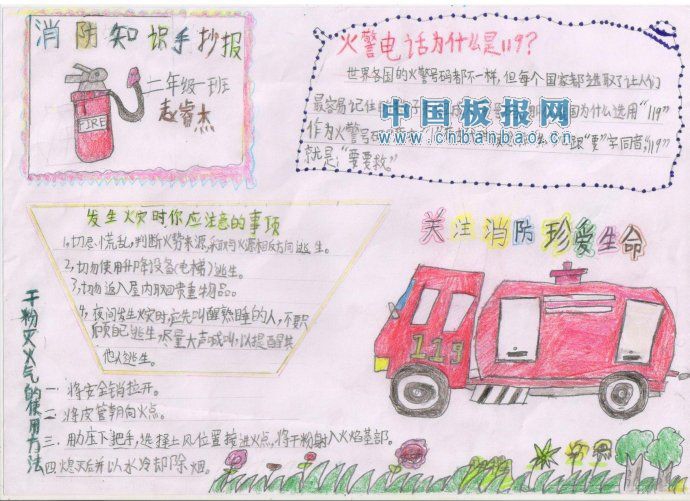 消防知识手抄报
二年级一班
赵睿杰
FIRE
火警电话为什么是119?
世界各国的火警号码都不一样，但每个国家都选取了让人们
最容易记住
国为什么选用“119”
作为火警号码
跟“要”字同音，“119”
就是：“要要救。”
中国板报网
www.cnbanbao.cn
发生火灾时你应注意的事项
1，切忌慌乱，判断火势来源，采取与火源相反方向逃生。
2，切勿使用升降设备(电梯)逃生。
3，切勿返入屋内取回贵重物品。
4，夜间发生火灾时，应先叫醒熟睡的人，不要只
顾自己逃生，尽量大声喊叫，以提醒其
他人逃生。
关注消防 珍爱生命
119
干粉灭火气的使用方法
一 将安全销拉开。
二 将皮管朝向火点。
三 用力压下把手，选择上风位置接进火点，将干粉射入火焰基部。
四 熄灭后并以水冷却除烟。